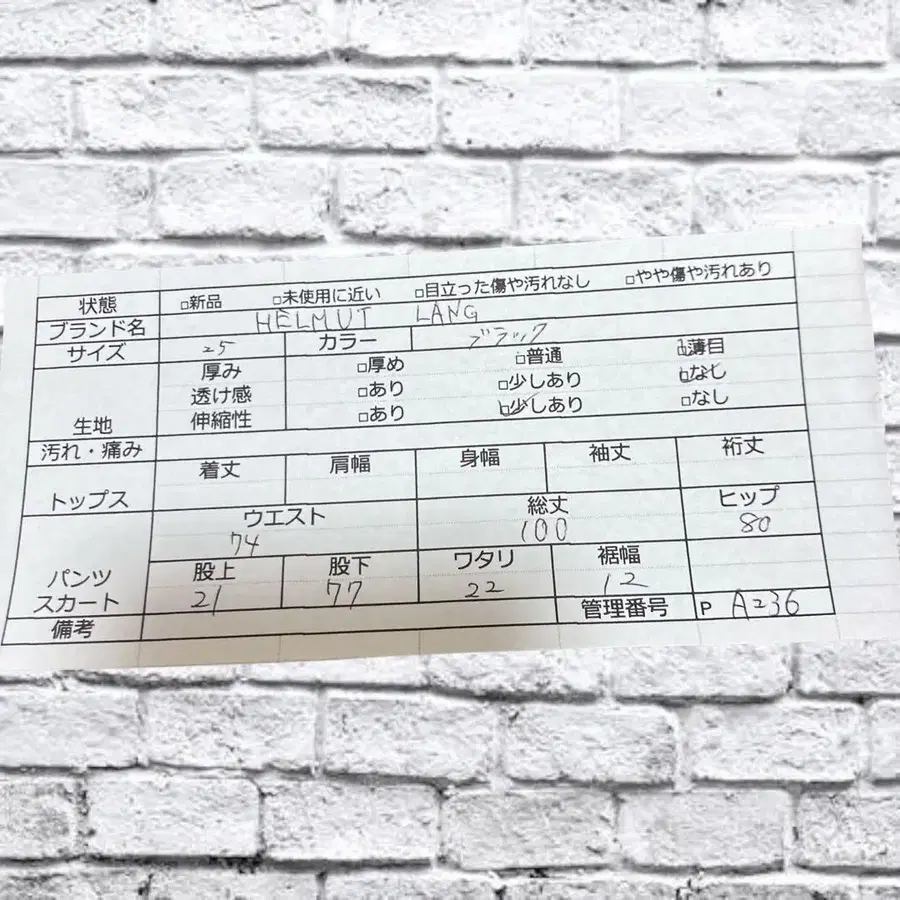 状態 □新品 □未使用に近い □目立った傷や汚れなし □やや傷や汚れあり
ブランド名 HELMUT LANG
サイズ 25 カラー ブラック
生地 厚み □厚め □普通 ☑薄目
透け感 □あり □少しあり ☑なし
伸縮性 □あり ☑少しあり □なし
汚れ・痛み
トップス 着丈 肩幅 身幅 袖丈 裄丈
パンツ スカート ウエスト 総丈 ヒップ
74 100 80
股上 股下 ワタリ 裾幅
21 77 22 12
備考 管理番号 P A236